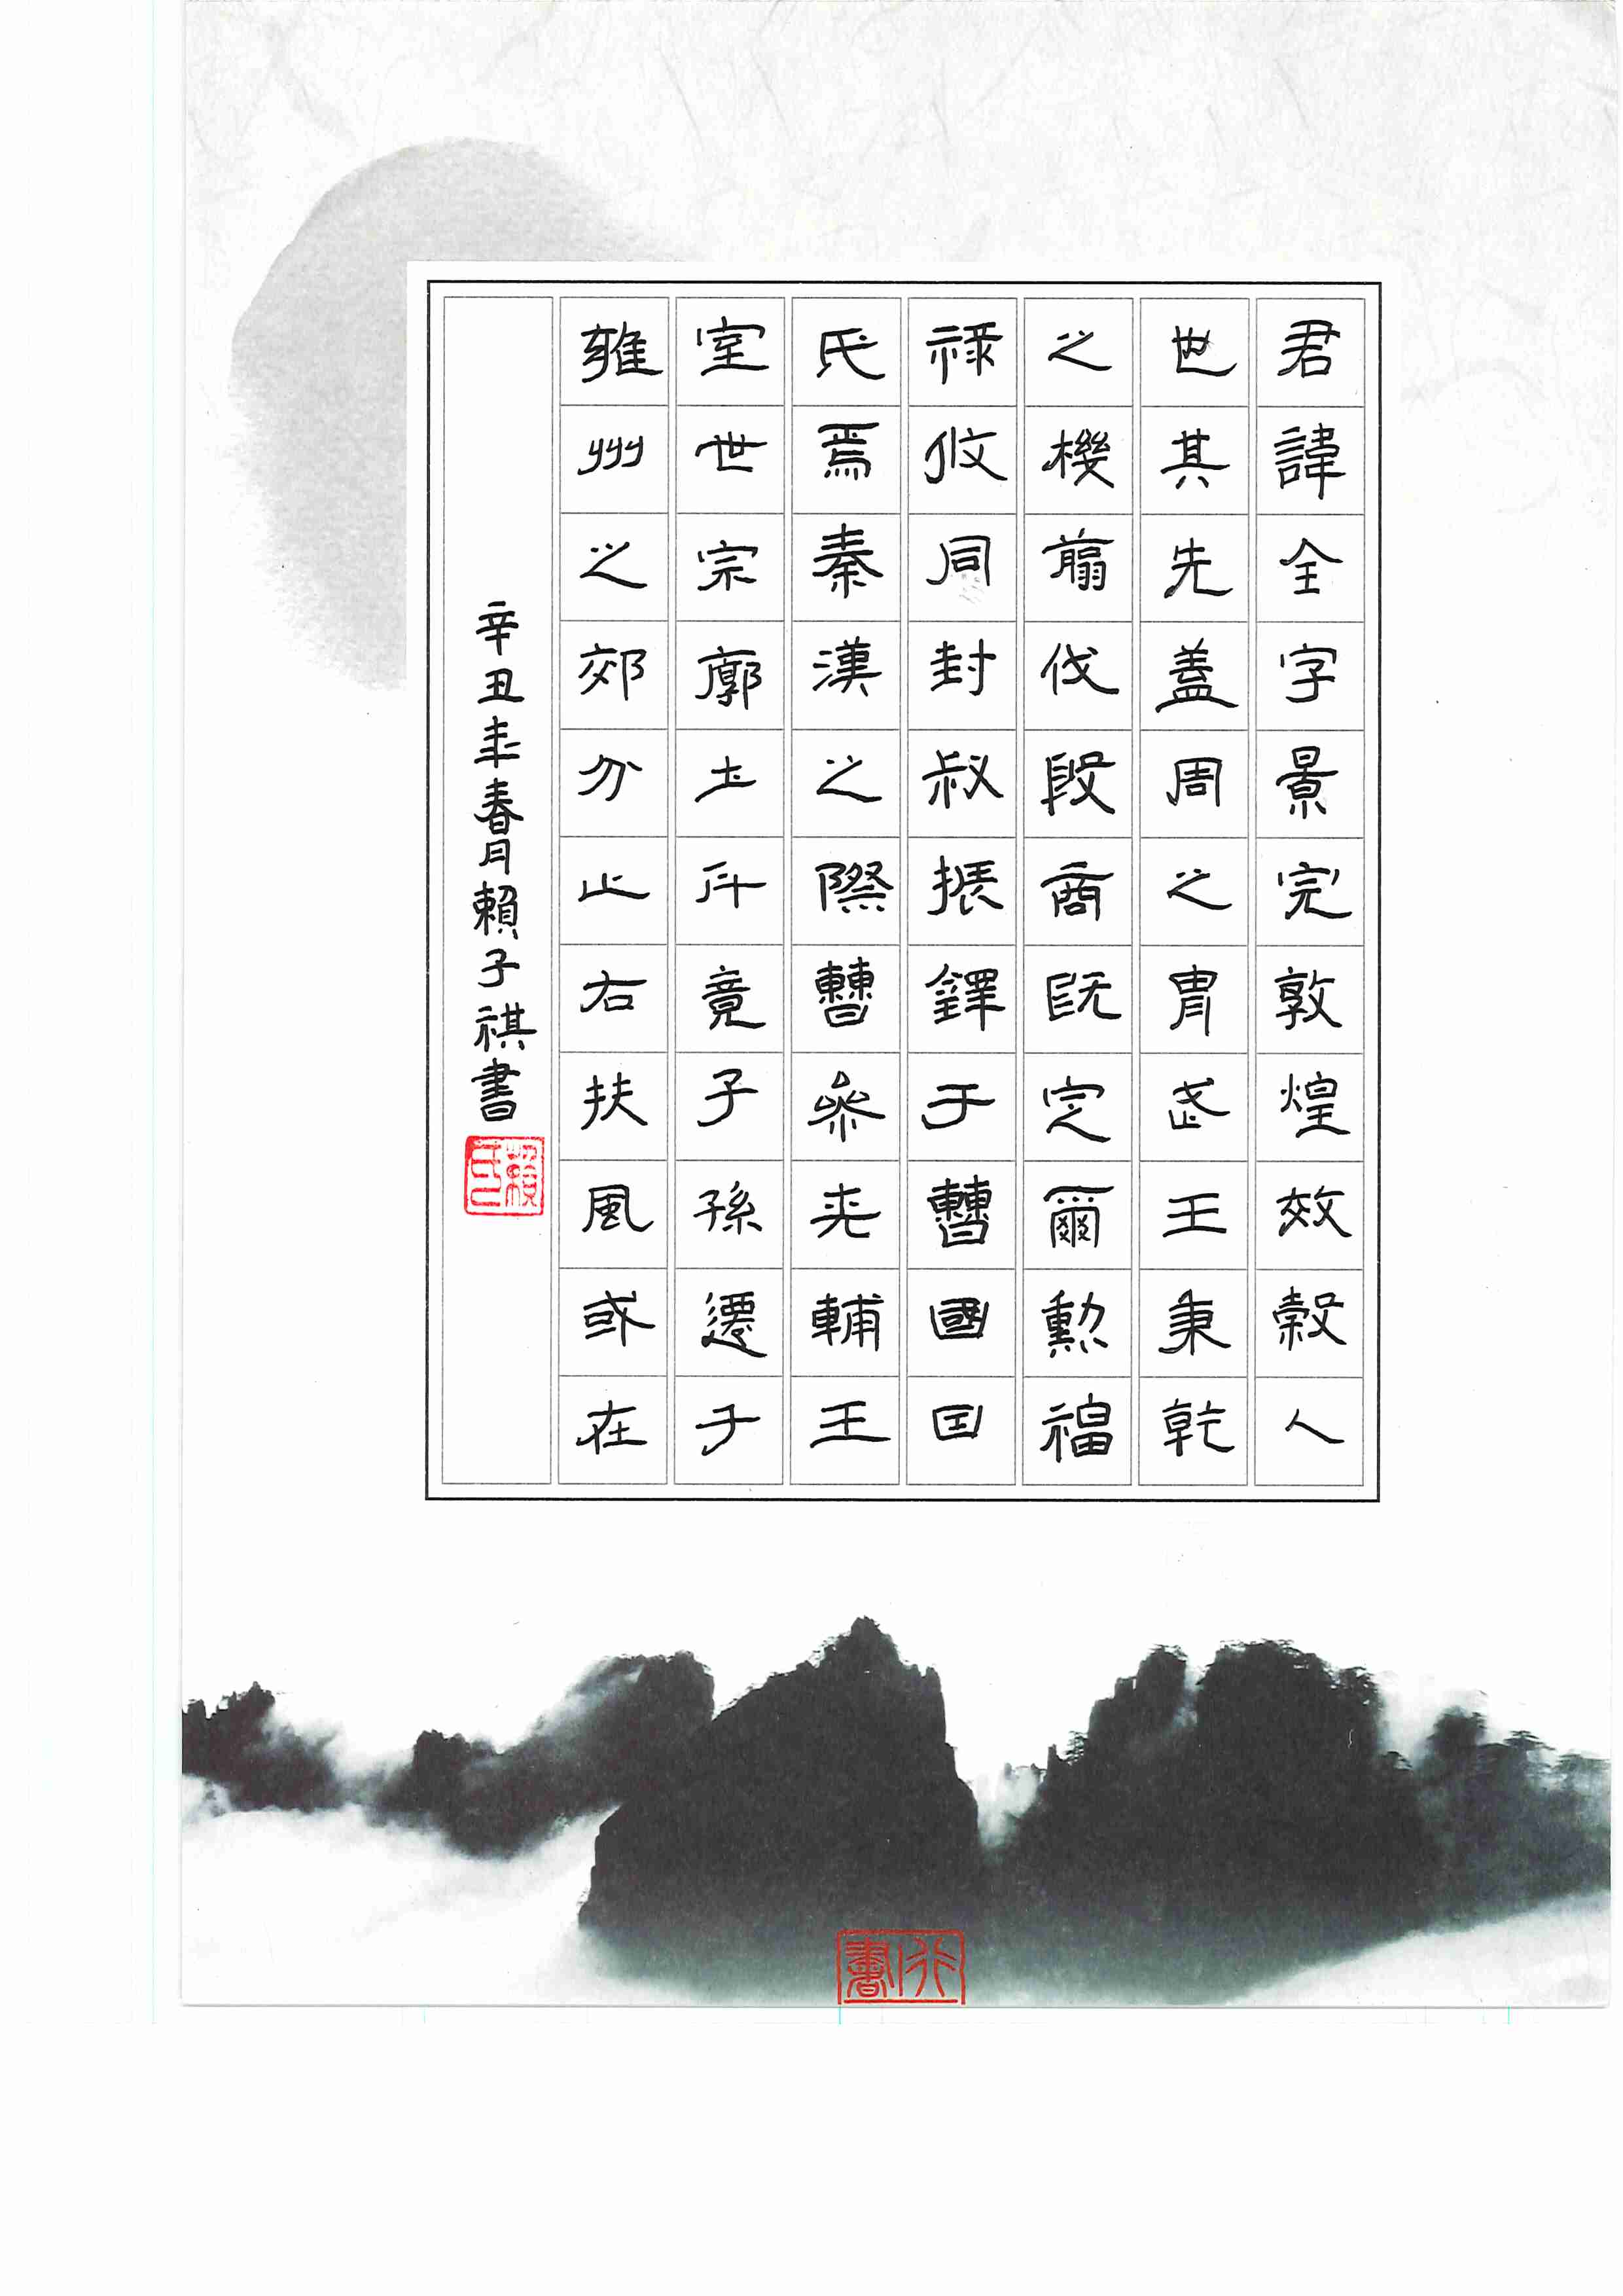 君諱全字景完敦煌效穀人
也其先蓋周之胄武王秉乾
之機翦伐殷商既定爾勳福
祿攸同封叔振鐸于曹國因
氏焉秦漢之際曹參夾輔王
室世宗廓土斥竟子孫遷于
雍州之郊分止右扶風或在
辛丑年春月賴子祺書
賴氏
行書